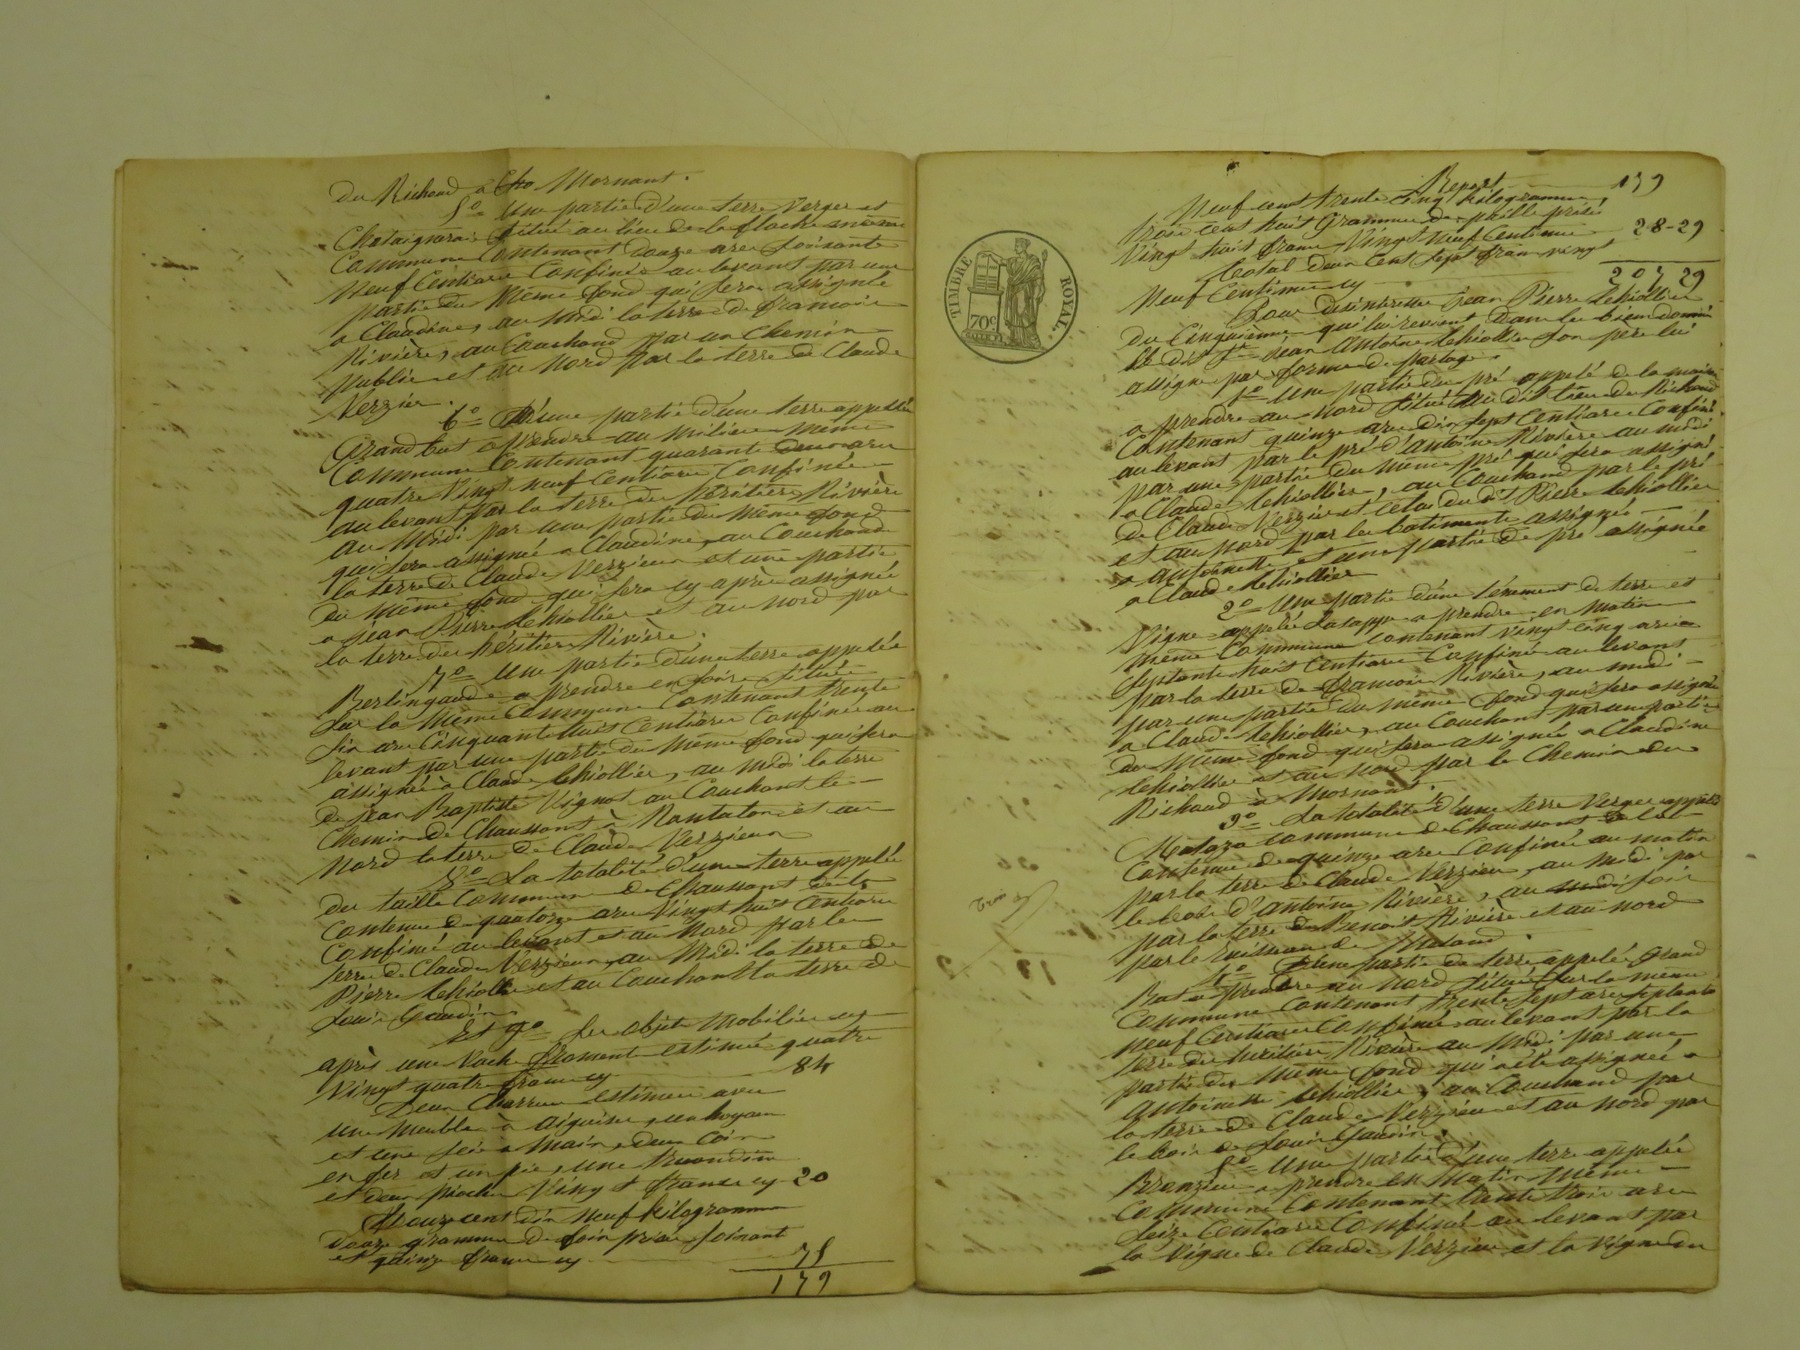 du Richoud à Mornant.
5° Une partie d'une terre Verger et
Chataignerai située au lieu de la floche même
Commune Contenant douze ares soixante
Neuf Centiares Confinés au levant par une
partie du Même fond qui sera assignée
a Claudine, au Midi la terre de francois
Rivière, au Couchand par un Chemin
public et au Nord par la terre de Claude
Verzier.
6° D'une partie d'une terre appellée
Grand bat a prendre au Milieu même
Commune Contenant quarante deux ares
quatre Vingt neuf Centiares Confinée
au levant par la terre des héritiers Rivière
au Midi par une partie du Même fond
qui sera assignée a Claudine, au Couchand
la terre de Claude Verzieux et une partie
du même fond qui sera cy après assignée
a jean Pierre Schiollier et au nord par
la terre des héritiers Rivière.
7° Une partie d'une terre appelée
Berlingaude a prendre en soir située
sur la Même Commune Contenant trente
six ares Cinquante huit Centiares Confinée au
levant par une partie du Même fond qui sera
assignée à Claude Schiollier, au Midi la terre
de jean Baptiste Vignot au Couchant le
Chemin de Chaussant à Rontalon et au
Nord la terre de Claude Verzieux
8° La totalité d'une terre appelée
des taille Commune de Chaussant de la
Contenue de quatorze ares Vingt huit Centiares
Confiné au levant et au Nord par le
terre de Claude Verzieux, au Midi la terre de
Pierre Schiollier et au Couchant la terre de
Louis Gaudin
Et 9° les objets Mobiliers cy
après une Vache fromente estimée quatre
Vingt quatre francs cy 84
Deux Charrues estimées avec
une Meuble à aiguiser, un hoyau
et une scie a Main, deux Coins
en fer et un pic, une
et deux pioches Vingt francs cy 20
cent dix neuf kilogrammes
douze grammes de foin prisé soixant
et quinze francs cy 75
179
Report 179
Neuf cent trente Cinq kilogrammes
trois cent huit Grammes de paille prisé
Vingt huit francs Vingt neuf Centimes 28-29
Total deux Cent sept francs vingt
Neuf Centimes cy 207 29
TIMBRE ROYAL.
70c
Pour désintéresser jean Pierre Schiollier
du Cinquième qui lui revient dans les biens donnés
jean antoine Schiollier son père lui
assigne par forme de partage.
1° Une partie du pré appelé de la maison
a prendre au Nord situé au dit lieu du Richoud
Contenant quinze ares dix sept Centiares Confiné
au levant par le pré d'antoine Rivière au midi
par une partie du même pré qui sera assigné
a Claude Schiollier, au Couchand par le pré
de Claude Verzier et celui du dit Pierre Schiollier
et au Nord par les batiments assignés
a antoinette et une partie de pré assignée
a Claude Schiollier
2° Une partie d'une ténement de terre et
Vigne appelée Lasappe a prendre en matin
même Commune Contenant Vingt cinq ares
septante huit Centiares Confiné au levant
par la terre de francois Rivière, au midi
par une partie du même fond qui sera assignée
a Claude Schiollier, au Couchant par une partie
du Même fond qui sera assignée a Claudine
Schiollier et au Nord par le Chemin du
Richoud à Mornant.
3° La totalité d'une terre Verger appelée
Malozo Commune de Chaussant de la
Contenue de quinze ares Confiné au matin
par la terre de Claude Verzieux, au Midi par
le bois d'antoine Rivière, au soir
par la terre de Benoit Rivière et au nord
par le Ruisseau de
4° D'une partie de terre appelé Grand
Bat a prendre au Nord située sur la même
Commune Contenant trente sept ares septante
neuf Centiares Confiné au levant par la
terre des héritiers Rivière au Midi par une
partie du Même fond qui a été assignée a
antoinette Schiollier, au Couchand par
la terre de Claude Verzieux et au nord par
le bois de Louis Gaudin.
5° Une partie d'une terre appelée
Bronzieux a prendre en Matin Même
Commune Contenant trente trois ares
seize Centiares Confiné au levant par
la Vigne de Claude Verzieux et la Vigne du